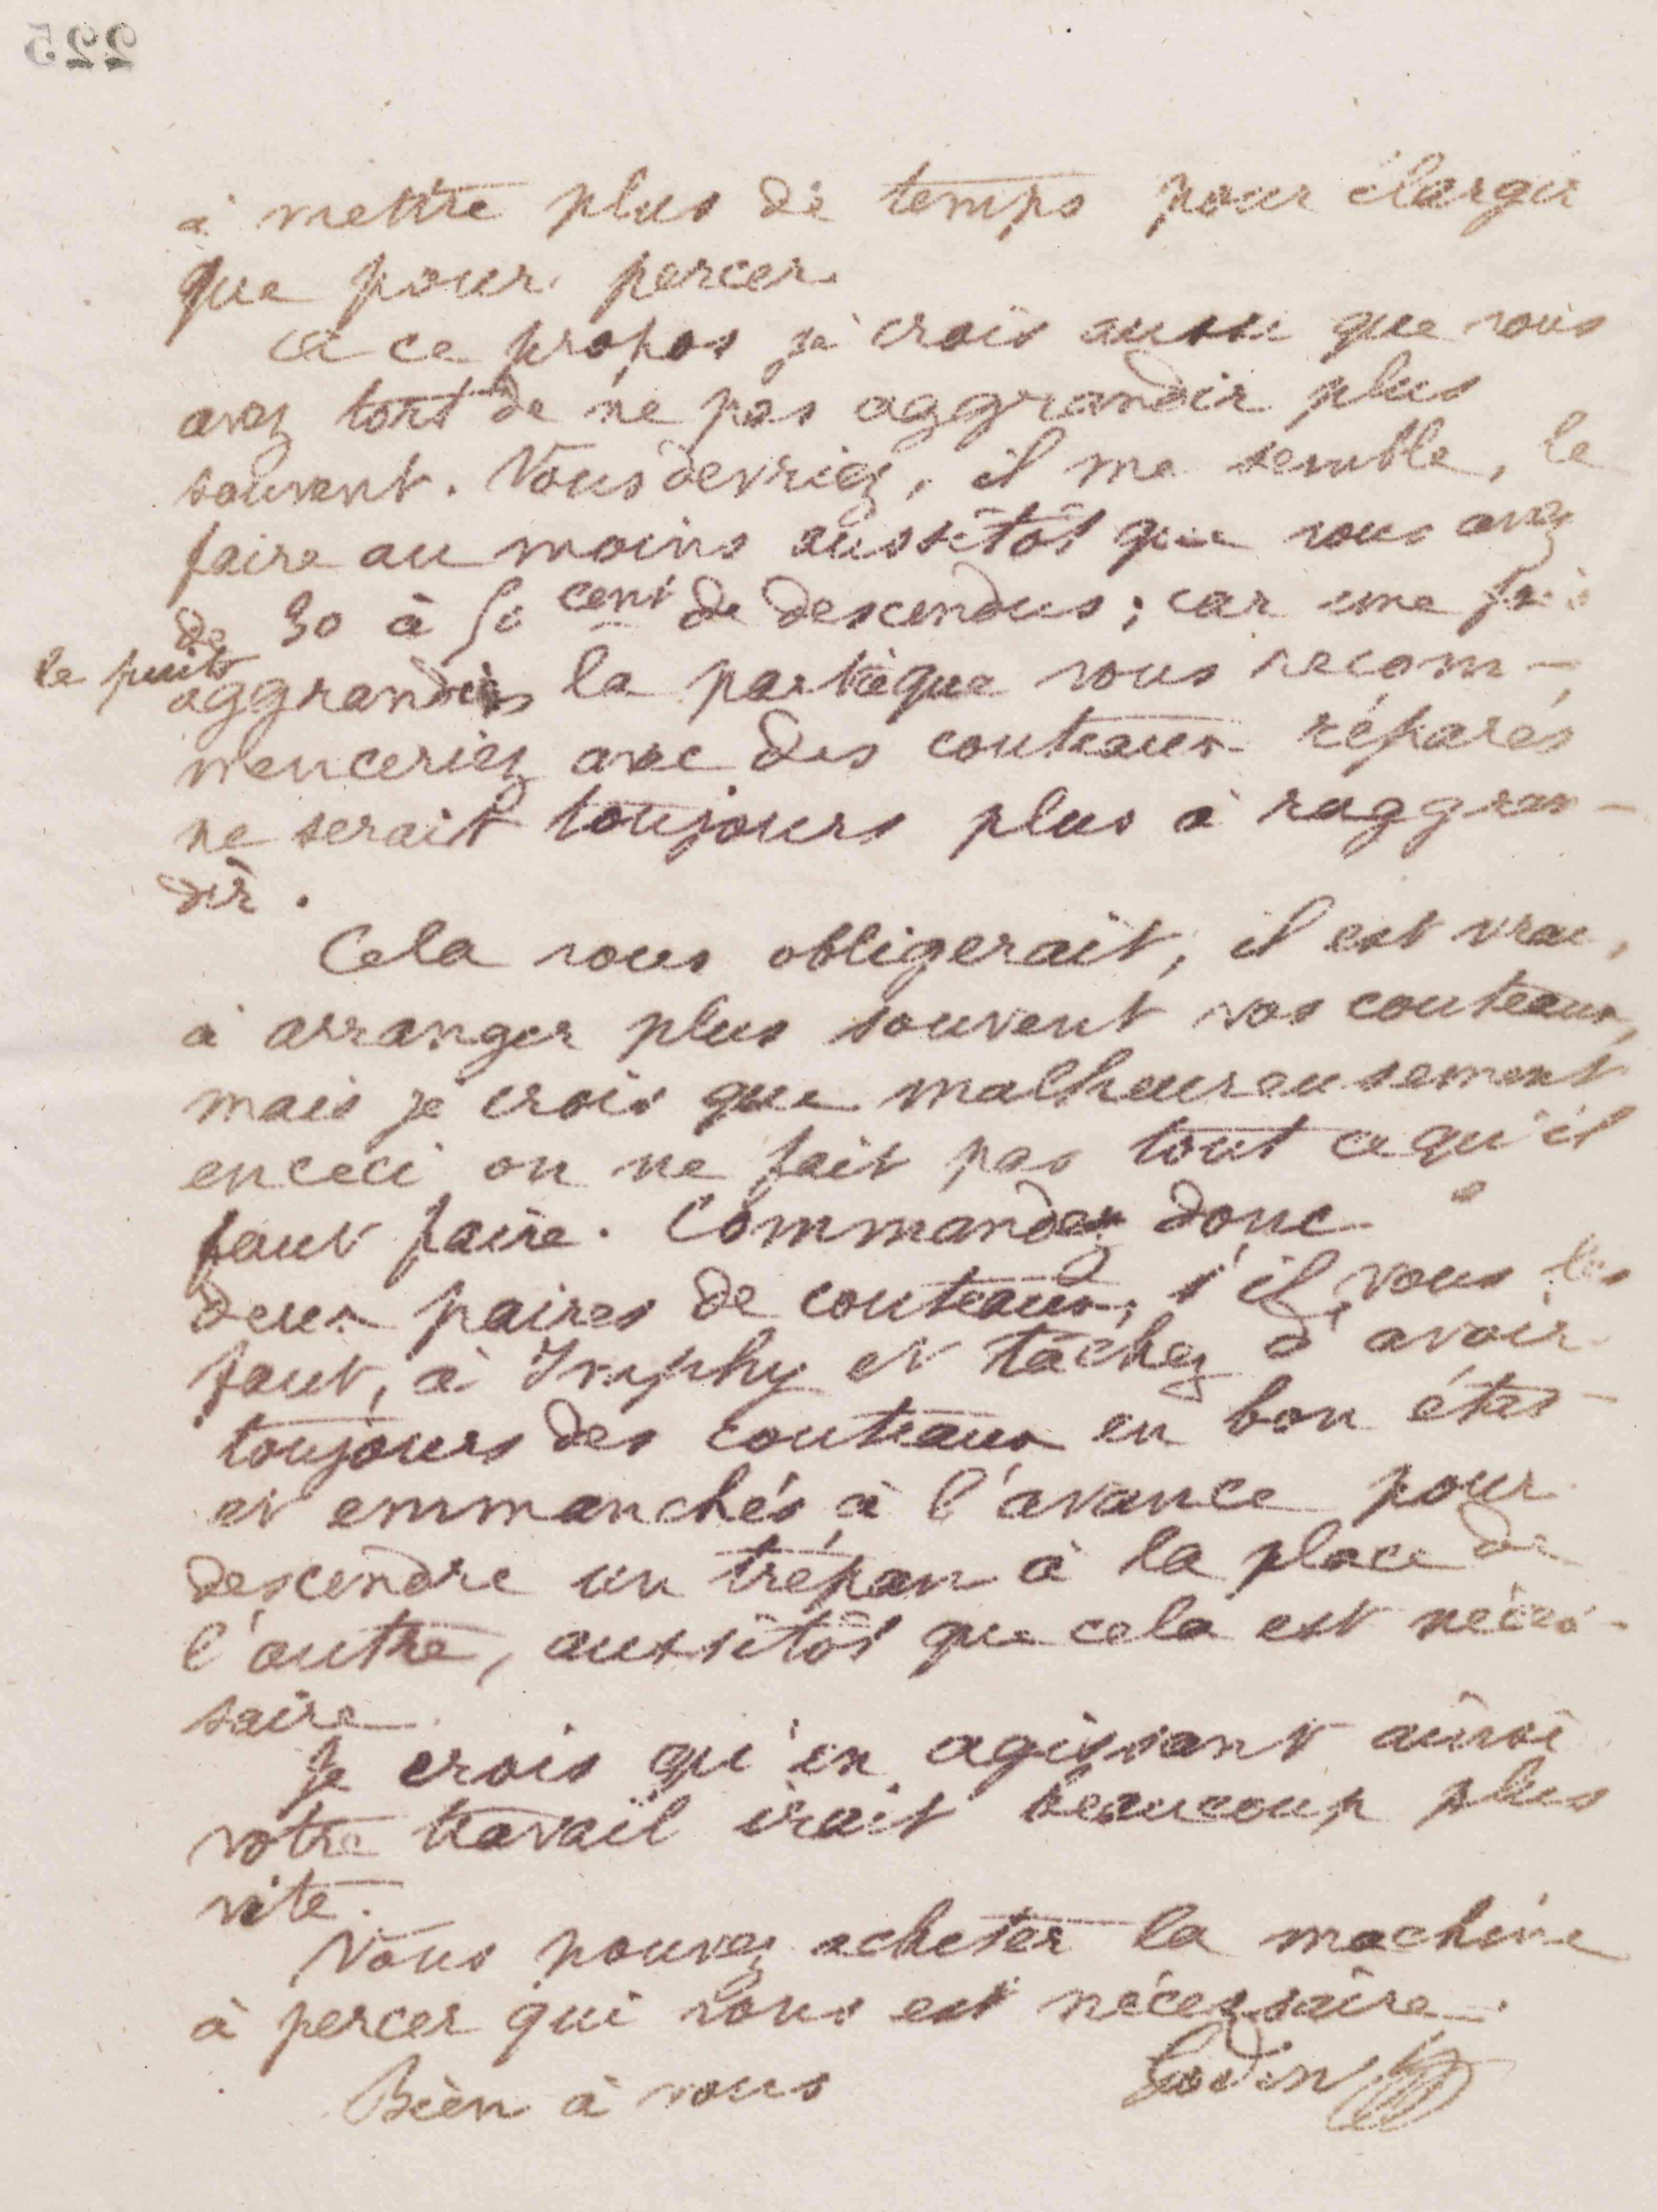 225
à mettre plus de temps pour élargir
que pour percer.
A ce propos je crois aussi que vous
avez tort de ne pas aggrandir plus
souvent. Vous devriez, il me semble, le
faire au moins aussitôt que vous avez
de 30 à 50 cent de descendus ; car une fois
le puits
aggrandi la partie que vous recom-
menceriez avec des couteaux réparés
ne serait toujours plus à raggran-
dir.
Cela vous obligerait, il est vrai,
à arranger plus souvent vos couteaux,
mais je crois que malheureusement
en ceci on ne fait pas tout ce qu'il
faut faire. Commandez donc
deux paires de couteaux, s'il vous les
faut, à Imphy et tâchez d'avoir
toujours des couteaux en bon état
et emmanchés à l'avance pour
descendre un trépan à la place de
l'autre, aussitôt que cela est néces-
saire.
Je crois qu'en agissant ainsi
votre travail irait beaucoup plus
vite.
Vous pouvez acheter la machine
à percer qui vous est nécessaire.
Bien à vous
Godin